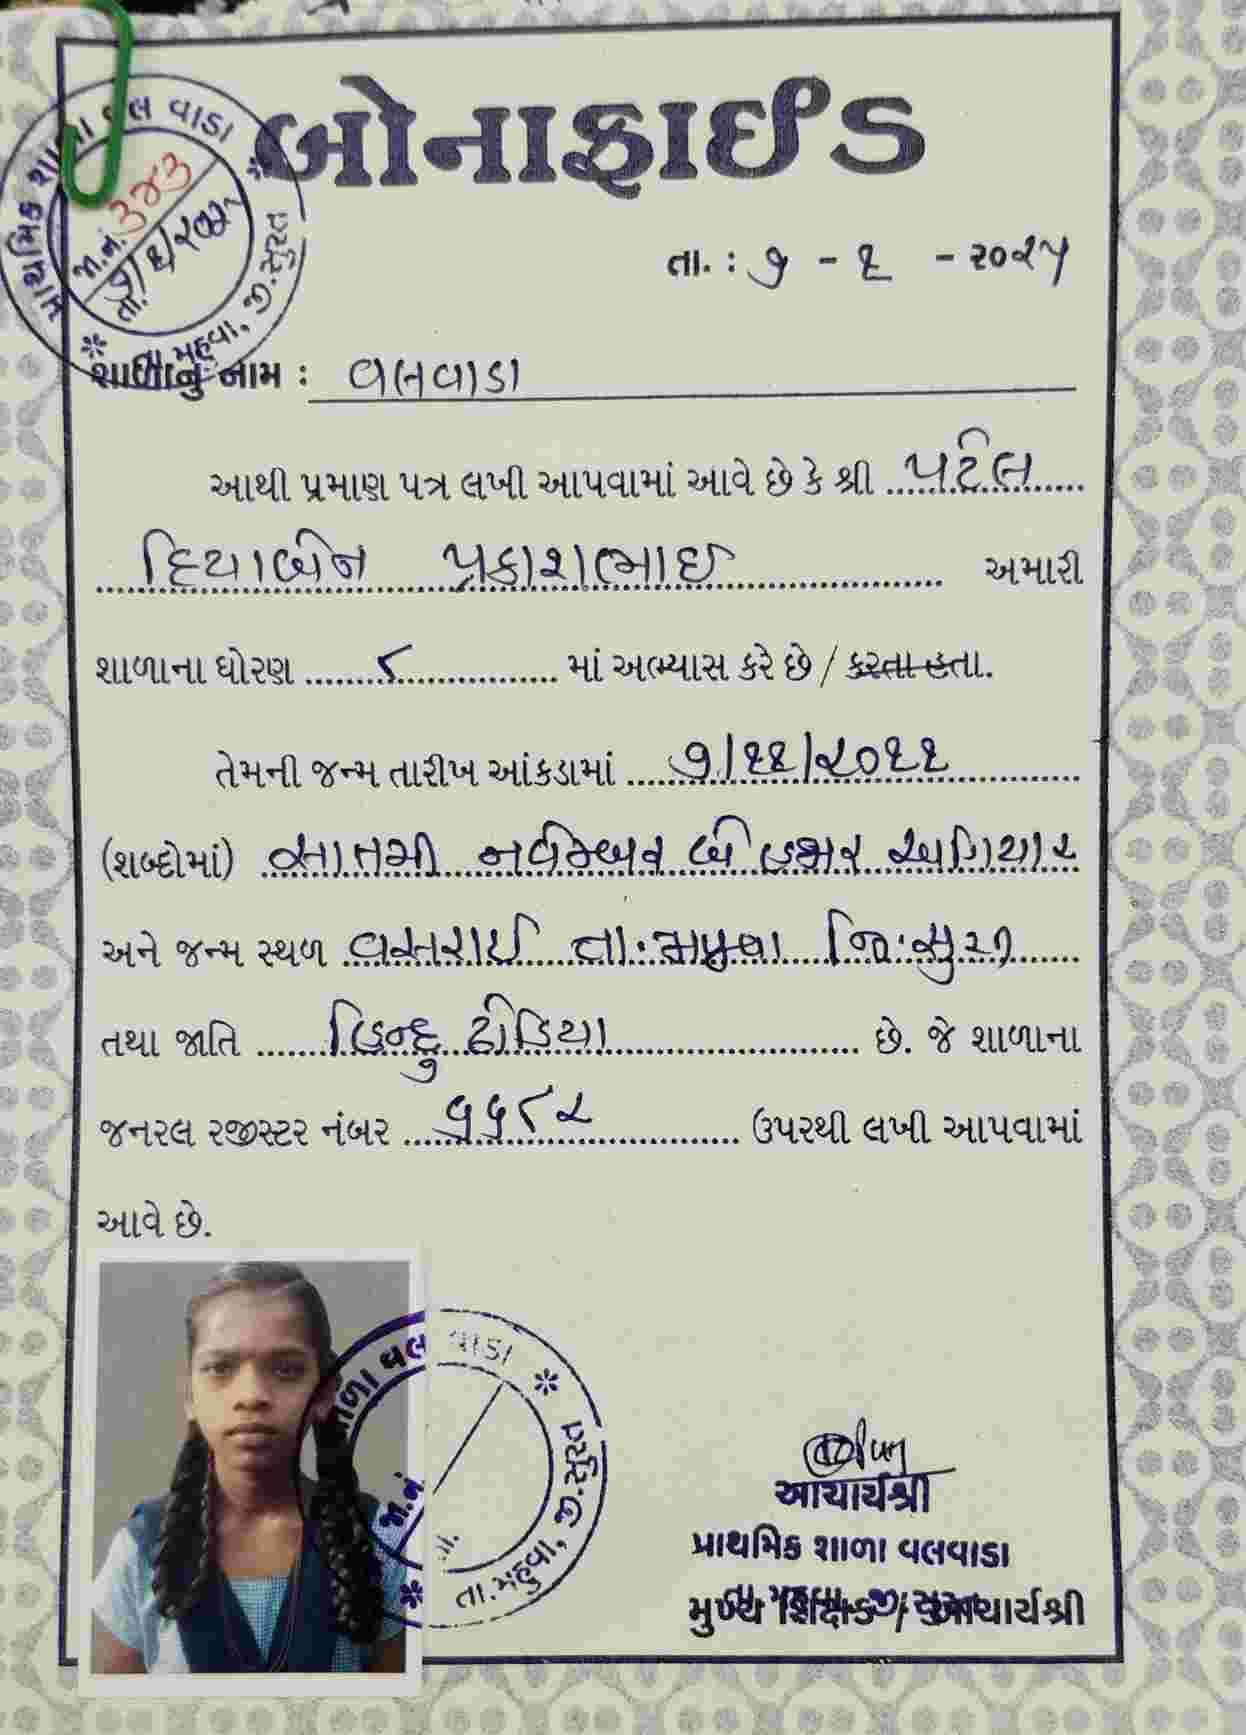 બોનાફાઈડ
પ્રાથમિક શાળા વલવાડા
જા.નં. ૩૪૩
તા.
તા.મહુવા, જી.સુરત
તા. : ૭ - ૬ - ૨૦૨૫
શાળાનું નામ : વલવાડા
આથી પ્રમાણ પત્ર લખી આપવામાં આવે છે કે શ્રી પટેલ
દિયાબેન પ્રકાશભાઈ અમારી
શાળાના ધોરણ ૮ માં અભ્યાસ કરે છે / કરતા હતા.
તેમની જન્મ તારીખ આંકડામાં ૭/૧૧/૨૦૧૧
(શબ્દોમાં) સાતમી નવેમ્બર બે હજાર અગિયાર
અને જન્મ સ્થળ વસરાઈ તા.મહુવા જિ.સુરત
તથા જાતિ હિન્દુ ઢોડિયા છે. જે શાળાના
જનરલ રજીસ્ટર નંબર ૫૫૮૨ ઉપરથી લખી આપવામાં
આવે છે.
શાળા વલવાડા
જા.નં.
તા.મહુવા, જી.સુરત
આચાર્યશ્રી
પ્રાથમિક શાળા વલવાડા
તા મહુવા જી સુરત
મુખ્ય શિક્ષક / આચાર્યશ્રી